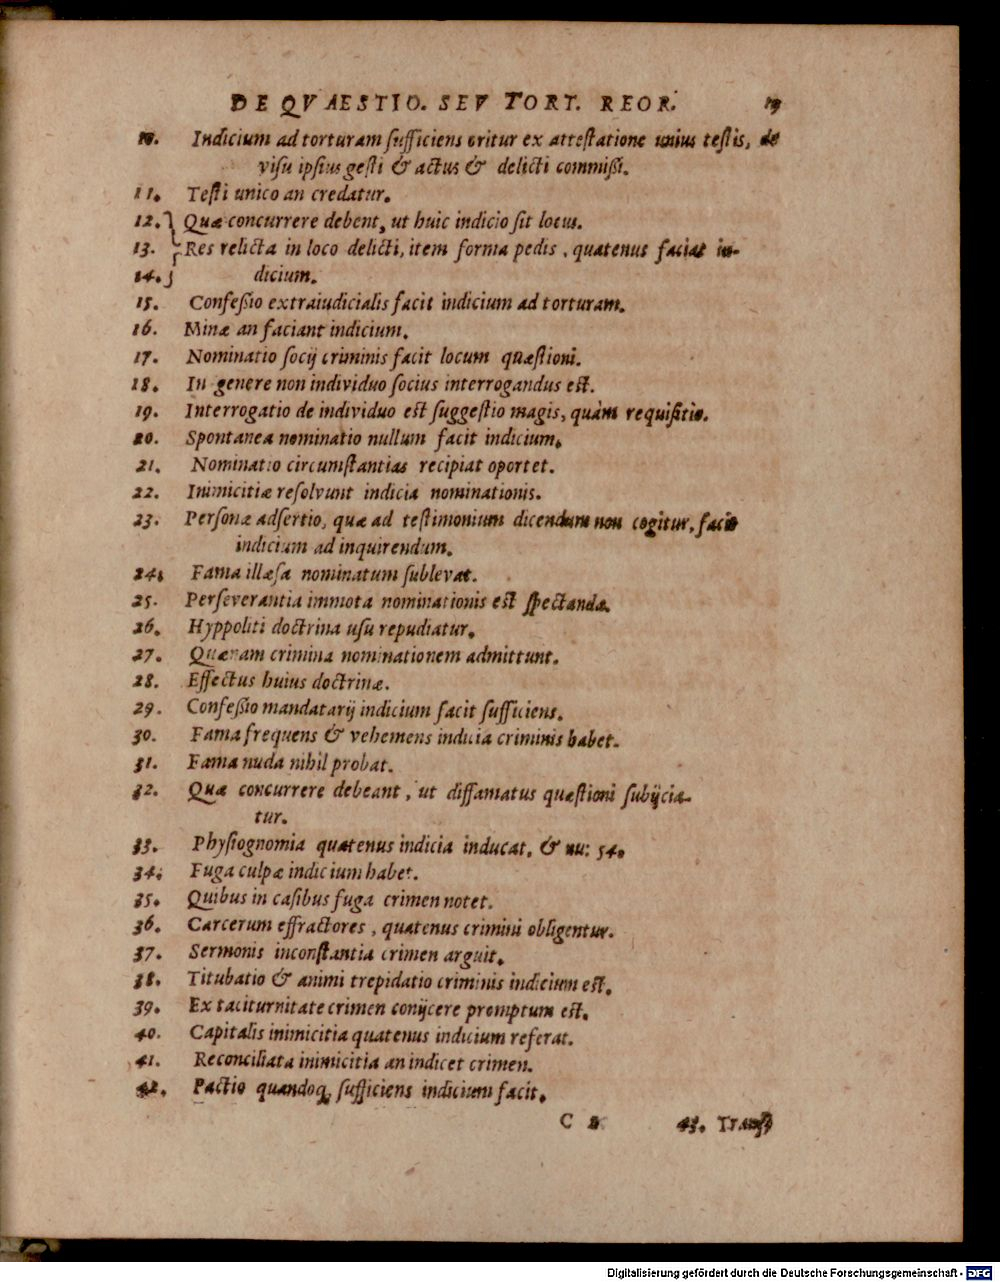 DE QVAESTIO. SEV TORT. REOR. 19
10. Indicium ad torturam ſufficiens oritur ex atteſtatione unius teſtis, de
viſu ipſius geſti & actus & delicti commißi.
11. Teſti unico an credatur.
12. Quæ concurrere debent, ut huic indicio ſit locus.
13. Res relicta in loco delicti, item forma pedis, quatenus faciat in-
14. dicium.
15. Confeßio extraiudicialis facit indicium ad torturam.
16. Minæ an faciant indicium.
17. Nominatio ſocij criminis facit locum quæſtioni.
18. In genere non individuo ſocius interrogandus est.
19. Interrogatio de individuo est ſuggeſtio magis, quàm requiſitio.
20. Spontanea nominatio nullum facit indicium.
21. Nominatio circumſtantias recipiat oportet.
22. Inimicitiæ reſolvunt indicia nominationis.
23. Perſonæ adſertio, quæ ad teſtimonium dicendum non cogitur, facit
indicium ad inquirendum.
24. Fama illæſa nominatum ſublevat.
25. Perſeverantia immota nominationis est ſpectanda.
26. Hyppoliti doctrina uſu repudiatur.
27. Quænam crimina nominationem admittunt.
28. Effectus huius doctrinæ.
29. Confeßio mandatarij indicium facit ſufficiens.
30. Fama frequens & vehemens indicia criminis habet.
31. Fama nuda nihil probat.
32. Quæ concurrere debeant, ut diffamatus quæſtioni ſubijcia-
tur.
33. Phyſiognomia quatenus indicia inducat, & nu: 54.
34. Fuga culpæ indicium habet.
35. Quibus in caſibus fuga crimen notet.
36. Carcerum effractores, quatenus crimini obligentur.
37. Sermonis inconſtantia crimen arguit.
38. Titubatio & animi trepidatio criminis indicium est.
39. Ex taciturnitate crimen conijcere promptum est.
40. Capitalis inimicitia quatenus indicium referat.
41. Reconciliata inimicitia an indicet crimen.
42. Pactio quandoq; ſufficiens indicium facit.
C 2 43. Tranſ
Digitalisierung gefördert durch die Deutsche Forschungsgemeinschaft - DFG